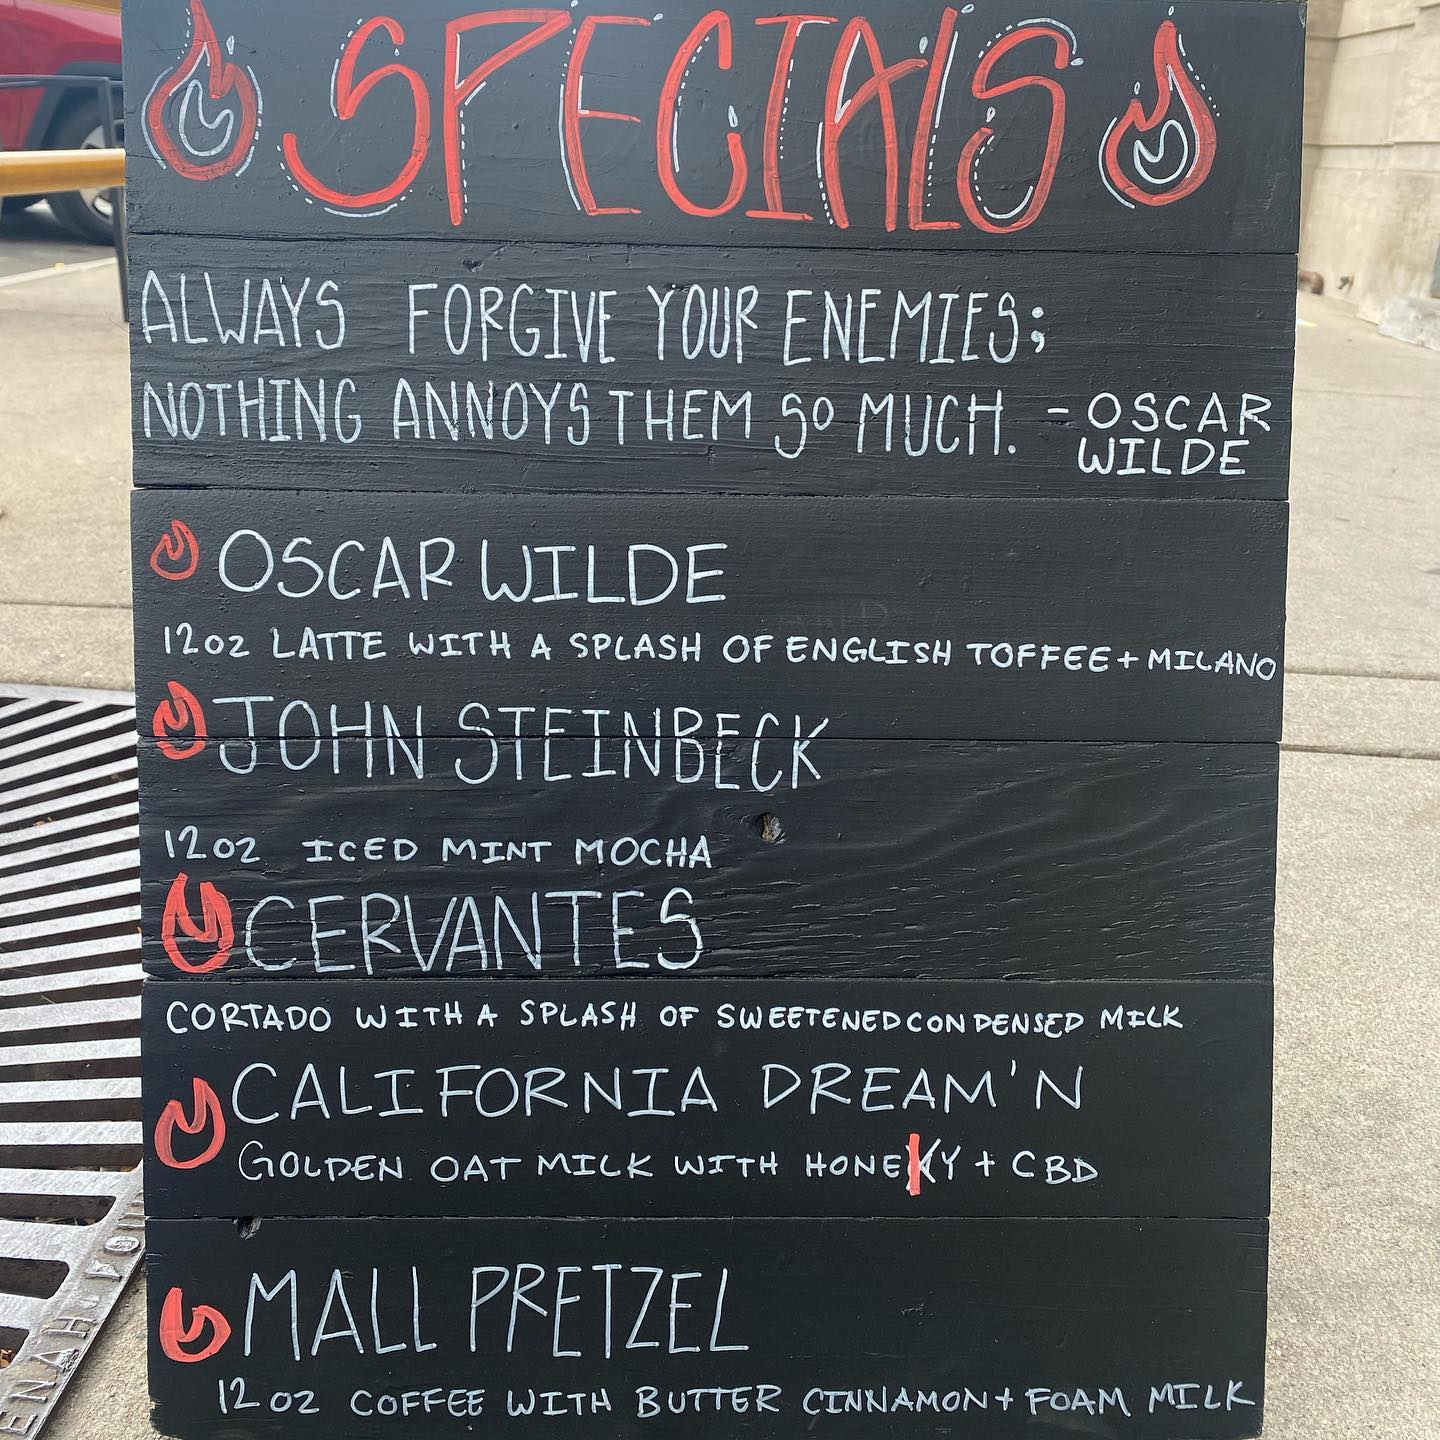 SPECIALS
ALWAYS FORGIVE YOUR ENEMIES;
NOTHING ANNOYS THEM SO MUCH. - OSCAR
WILDE
OSCAR WILDE
12OZ LATTE WITH A SPLASH OF ENGLISH TOFFEE + MILANO
JOHN STEINBECK
12OZ ICED MINT MOCHA
CERVANTES
CORTADO WITH A SPLASH OF SWEETENED CONDENSED MILK
CALIFORNIA DREAM'N
GOLDEN OAT MILK WITH HONEY + CBD
MALL PRETZEL
12 OZ COFFEE WITH BUTTER CINNAMON + FOAM MILK
ENAH